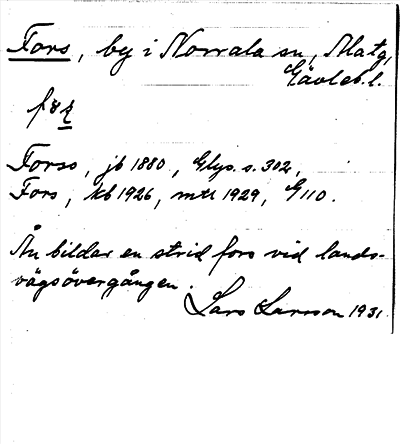 Fors, by i Norrala sn, Matg,
Gävleb. l.
Forss, jb 1880, Glys. s. 302,
Fors, kb 1926, mtl 1929, G 110.
Ån bildar en strid fors vid lands-
vägsövergången.
Lars Larsson 1931